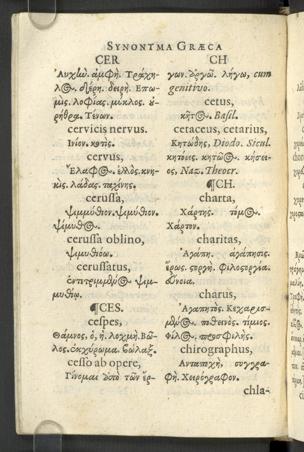 SYNONYMA GRÆCA
CER
Αυχμὺ. ἀμφὴ. Τράχη-
λ⊙. δέρη. δειρὴ. Επω-
μις. λοφίας. μύκλος.
Τένων.
cervicis nervus.
Ινίον.
cervus,
Ελαφ⊙. ἑλλὸς. κνη-
κὶς. λάδας. παχίνης.
cerussa,
ψιμμύθιον. ψιμύθιον.
ψίμυθ⊙.
cerussa oblino,
ψιμυθιόω.
cerussatus,
ψιμ-
μυθίῳ.
¶CES.
cespes,
Θάμνος. ὁ, ἡ. λοχμὴ. Βῶ-
λος. βώλαξ.
cesso ab opere,
Γίνομαι ἀπὸ τῶν ἔρ-
CH
γων. ἀργῶ. λήγω, cum
genitivo.
cetus,
κῆτ⊙. Basil.
cetaceus, cetarius,
Κητώδης, Diodo. Sicul.
κητόεις. κητῶ⊙. κήτει-
ος, Naz. Theocr.
¶CH.
charta,
Χάρτης. τόμ⊙.
Χάρτον.
charitas,
Αγάπη. ἀγάπησις.
ἔρως. στοργὴ. Φιλοστοργία.
εὔνοια.
charus,
Αγαπητός. Κεχαρισ-
μέν⊙. ποθεινὸς. τίμιος.
φίλ⊙. προσφιλής.
chirographus,
Ανταποχὴ, συγγρα-
φὴ. Χειρόγραφον.
chla-